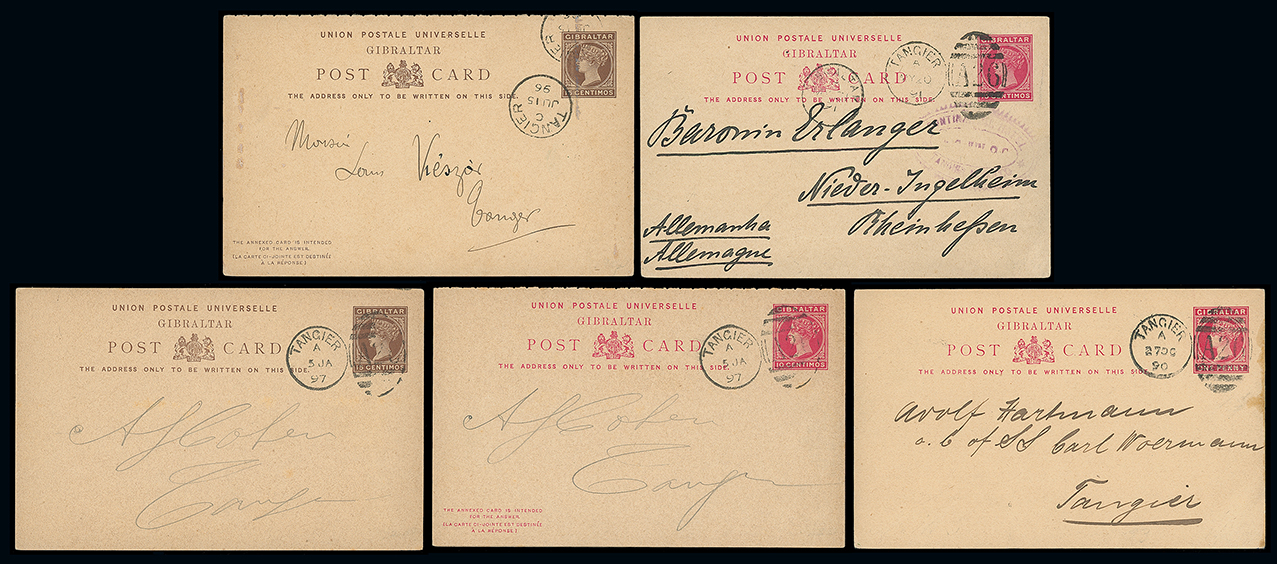 UNION POSTALE UNIVERSELLE
GIBRALTAR
POST CARD
THE ADDRESS ONLY TO BE WRITTEN ON THIS SIDE.
GIBRALTAR
15 CENTIMOS
TANGIER
C
JU 15
96
Louis Vészór
Tanger
THE ANNEXED CARD IS INTENDED
FOR THE ANSWER.
(LA CARTE CI-JOINTE EST DESTINÉE
À LA RÉPONSE)
UNION POSTALE UNIVERSELLE
GIBRALTAR
POST CARD
THE ADDRESS ONLY TO BE WRITTEN ON THIS SIDE.
GIBRALTAR
CENTIMOS
TANGIER
A
91
A26
Baronin Erlanger
Nieder-Ingelheim
Rheinhessen
Allemanha
Allemagne
UNION POSTALE UNIVERSELLE
GIBRALTAR
POST CARD
THE ADDRESS ONLY TO BE WRITTEN ON THIS SIDE.
GIBRALTAR
15 CENTIMOS
TANGIER
A
5 JA
97
A J Cohen
Tanger
UNION POSTALE UNIVERSELLE
GIBRALTAR
POST CARD
THE ADDRESS ONLY TO BE WRITTEN ON THIS SIDE.
GIBRALTAR
10 CENTIMOS
TANGIER
A
5 JA
97
A J Cohen
Tanger
THE ANNEXED CARD IS INTENDED
FOR THE ANSWER.
(LA CARTE CI-JOINTE EST DESTINÉE
À LA RÉPONSE)
UNION POSTALE UNIVERSELLE
GIBRALTAR
POST CARD
THE ADDRESS ONLY TO BE WRITTEN ON THIS SIDE.
GIBRALTAR
ONE PENNY
TANGIER
A
27 DC
90
Adolf Hartmann
o. b of SS Carl Woermann
Tangier